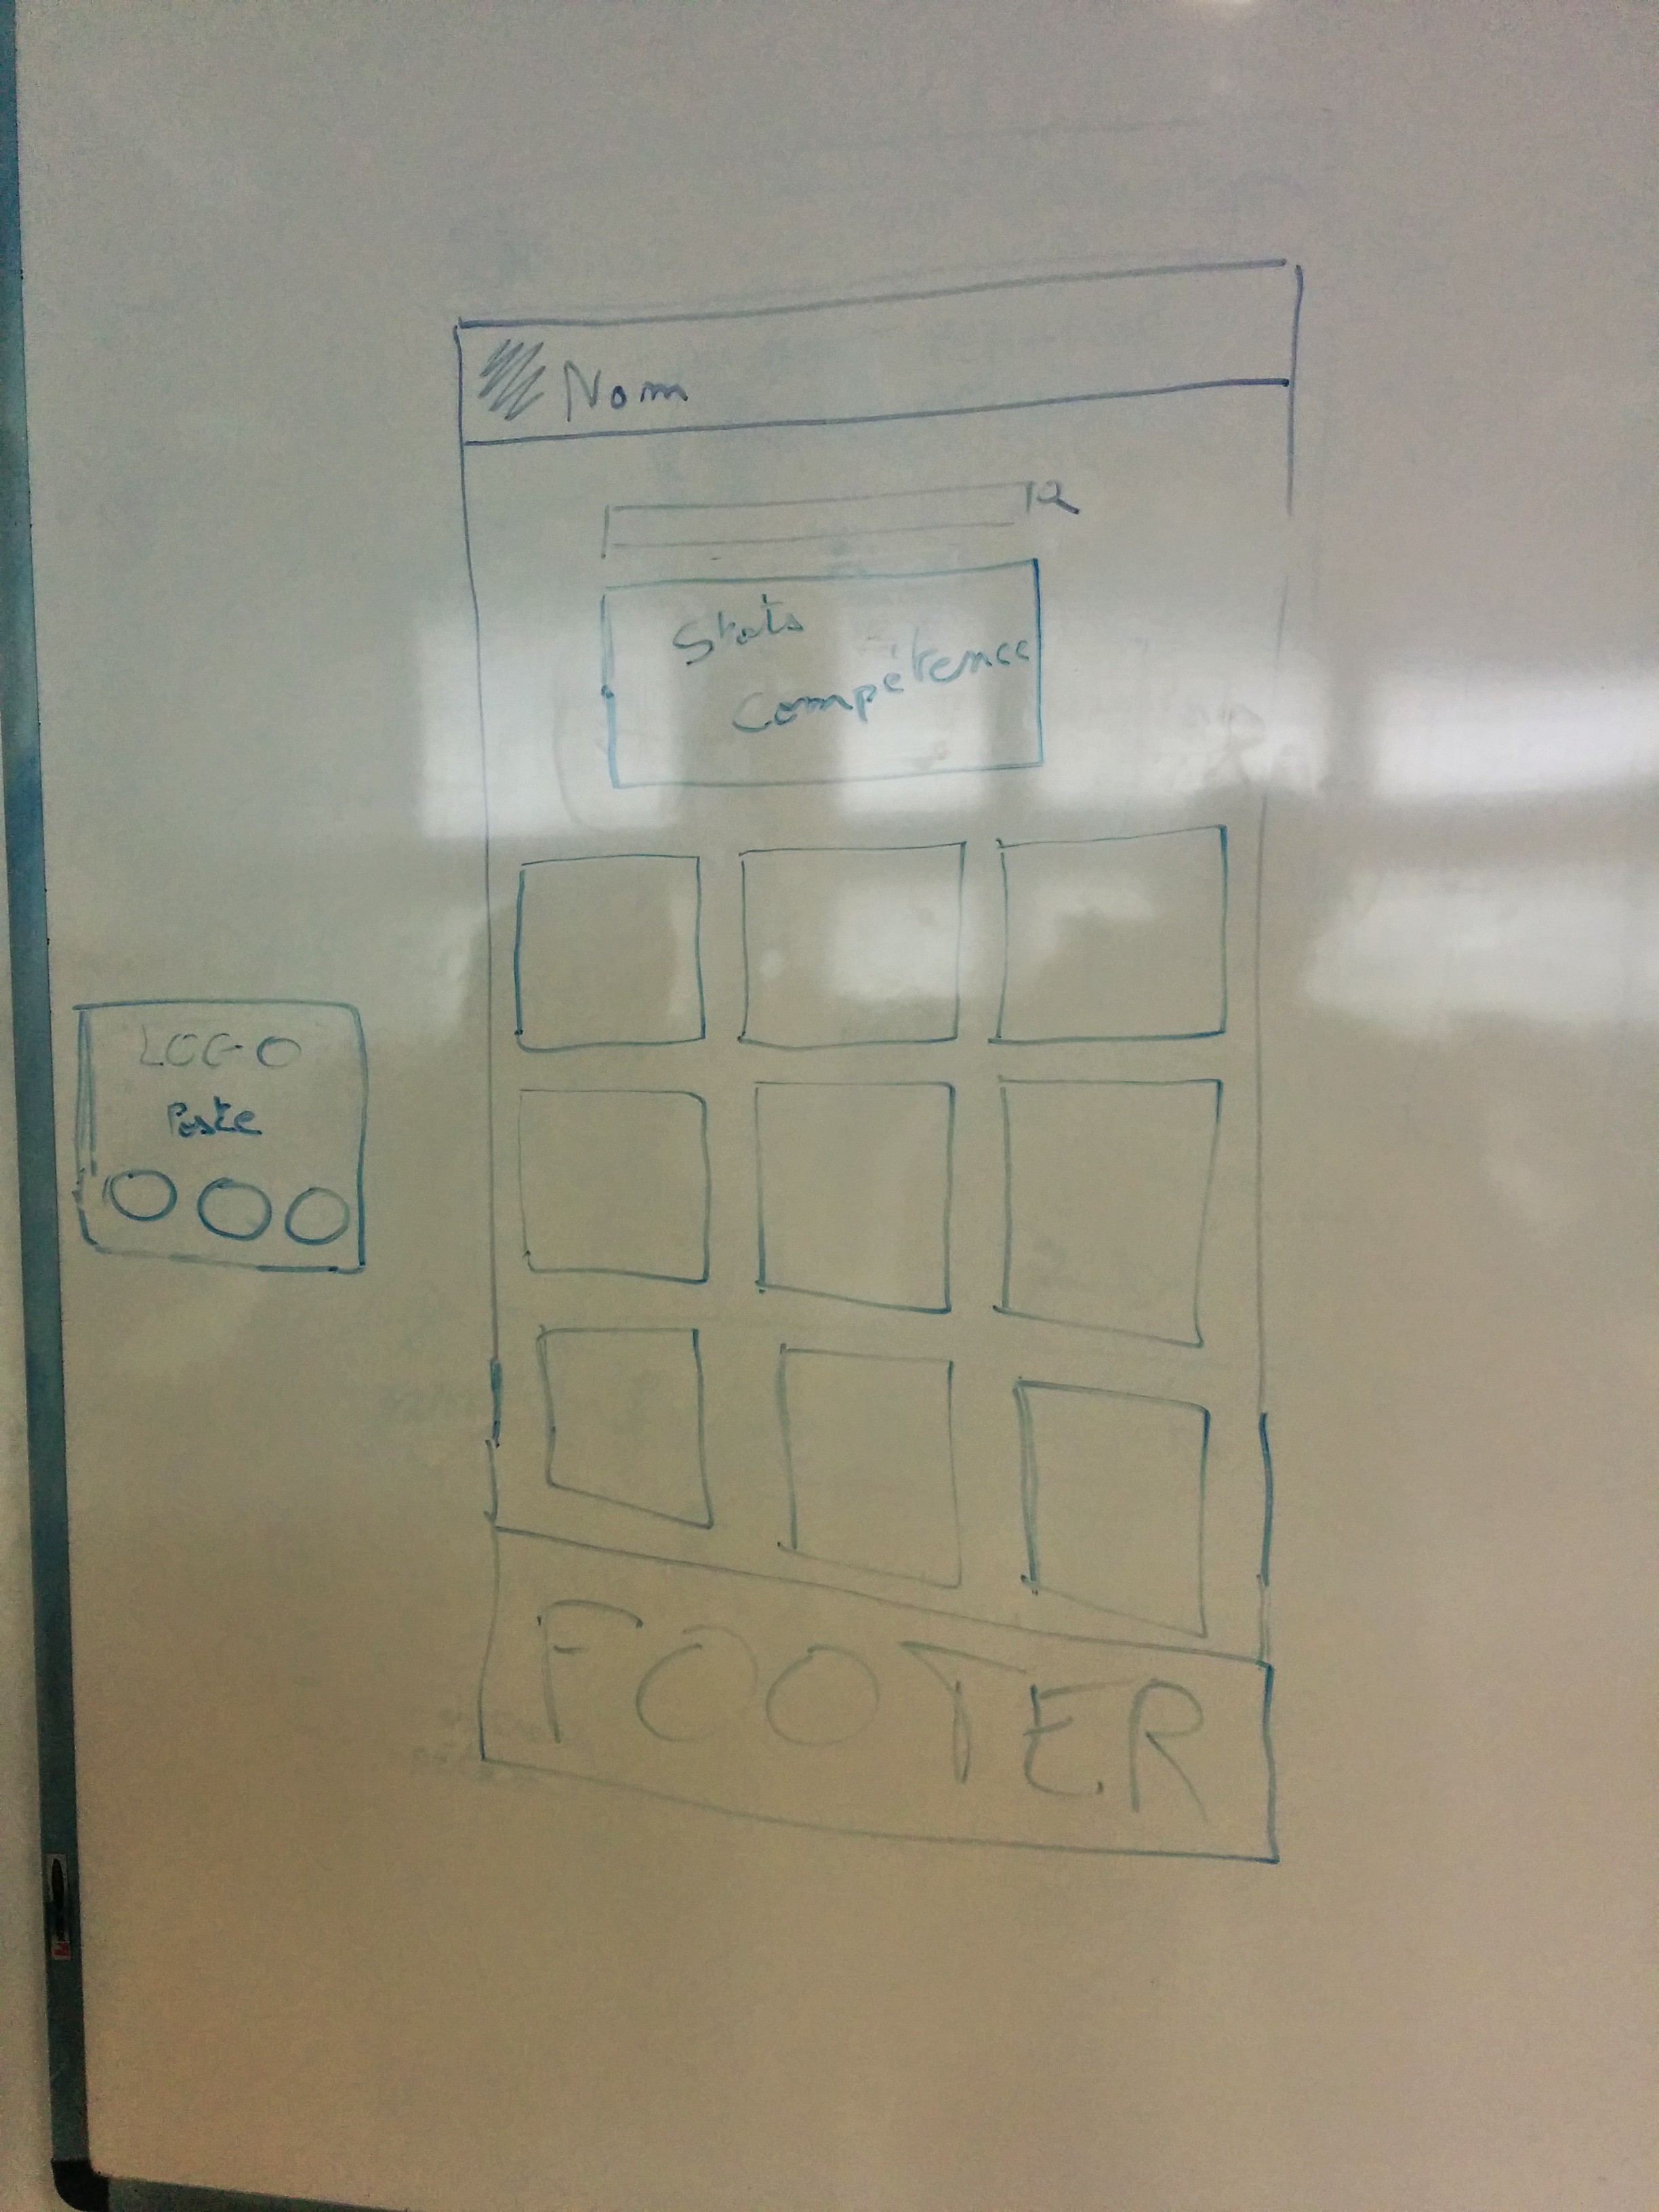 Nom
Stats
Compétence
LOGO
Poste
FOOTER